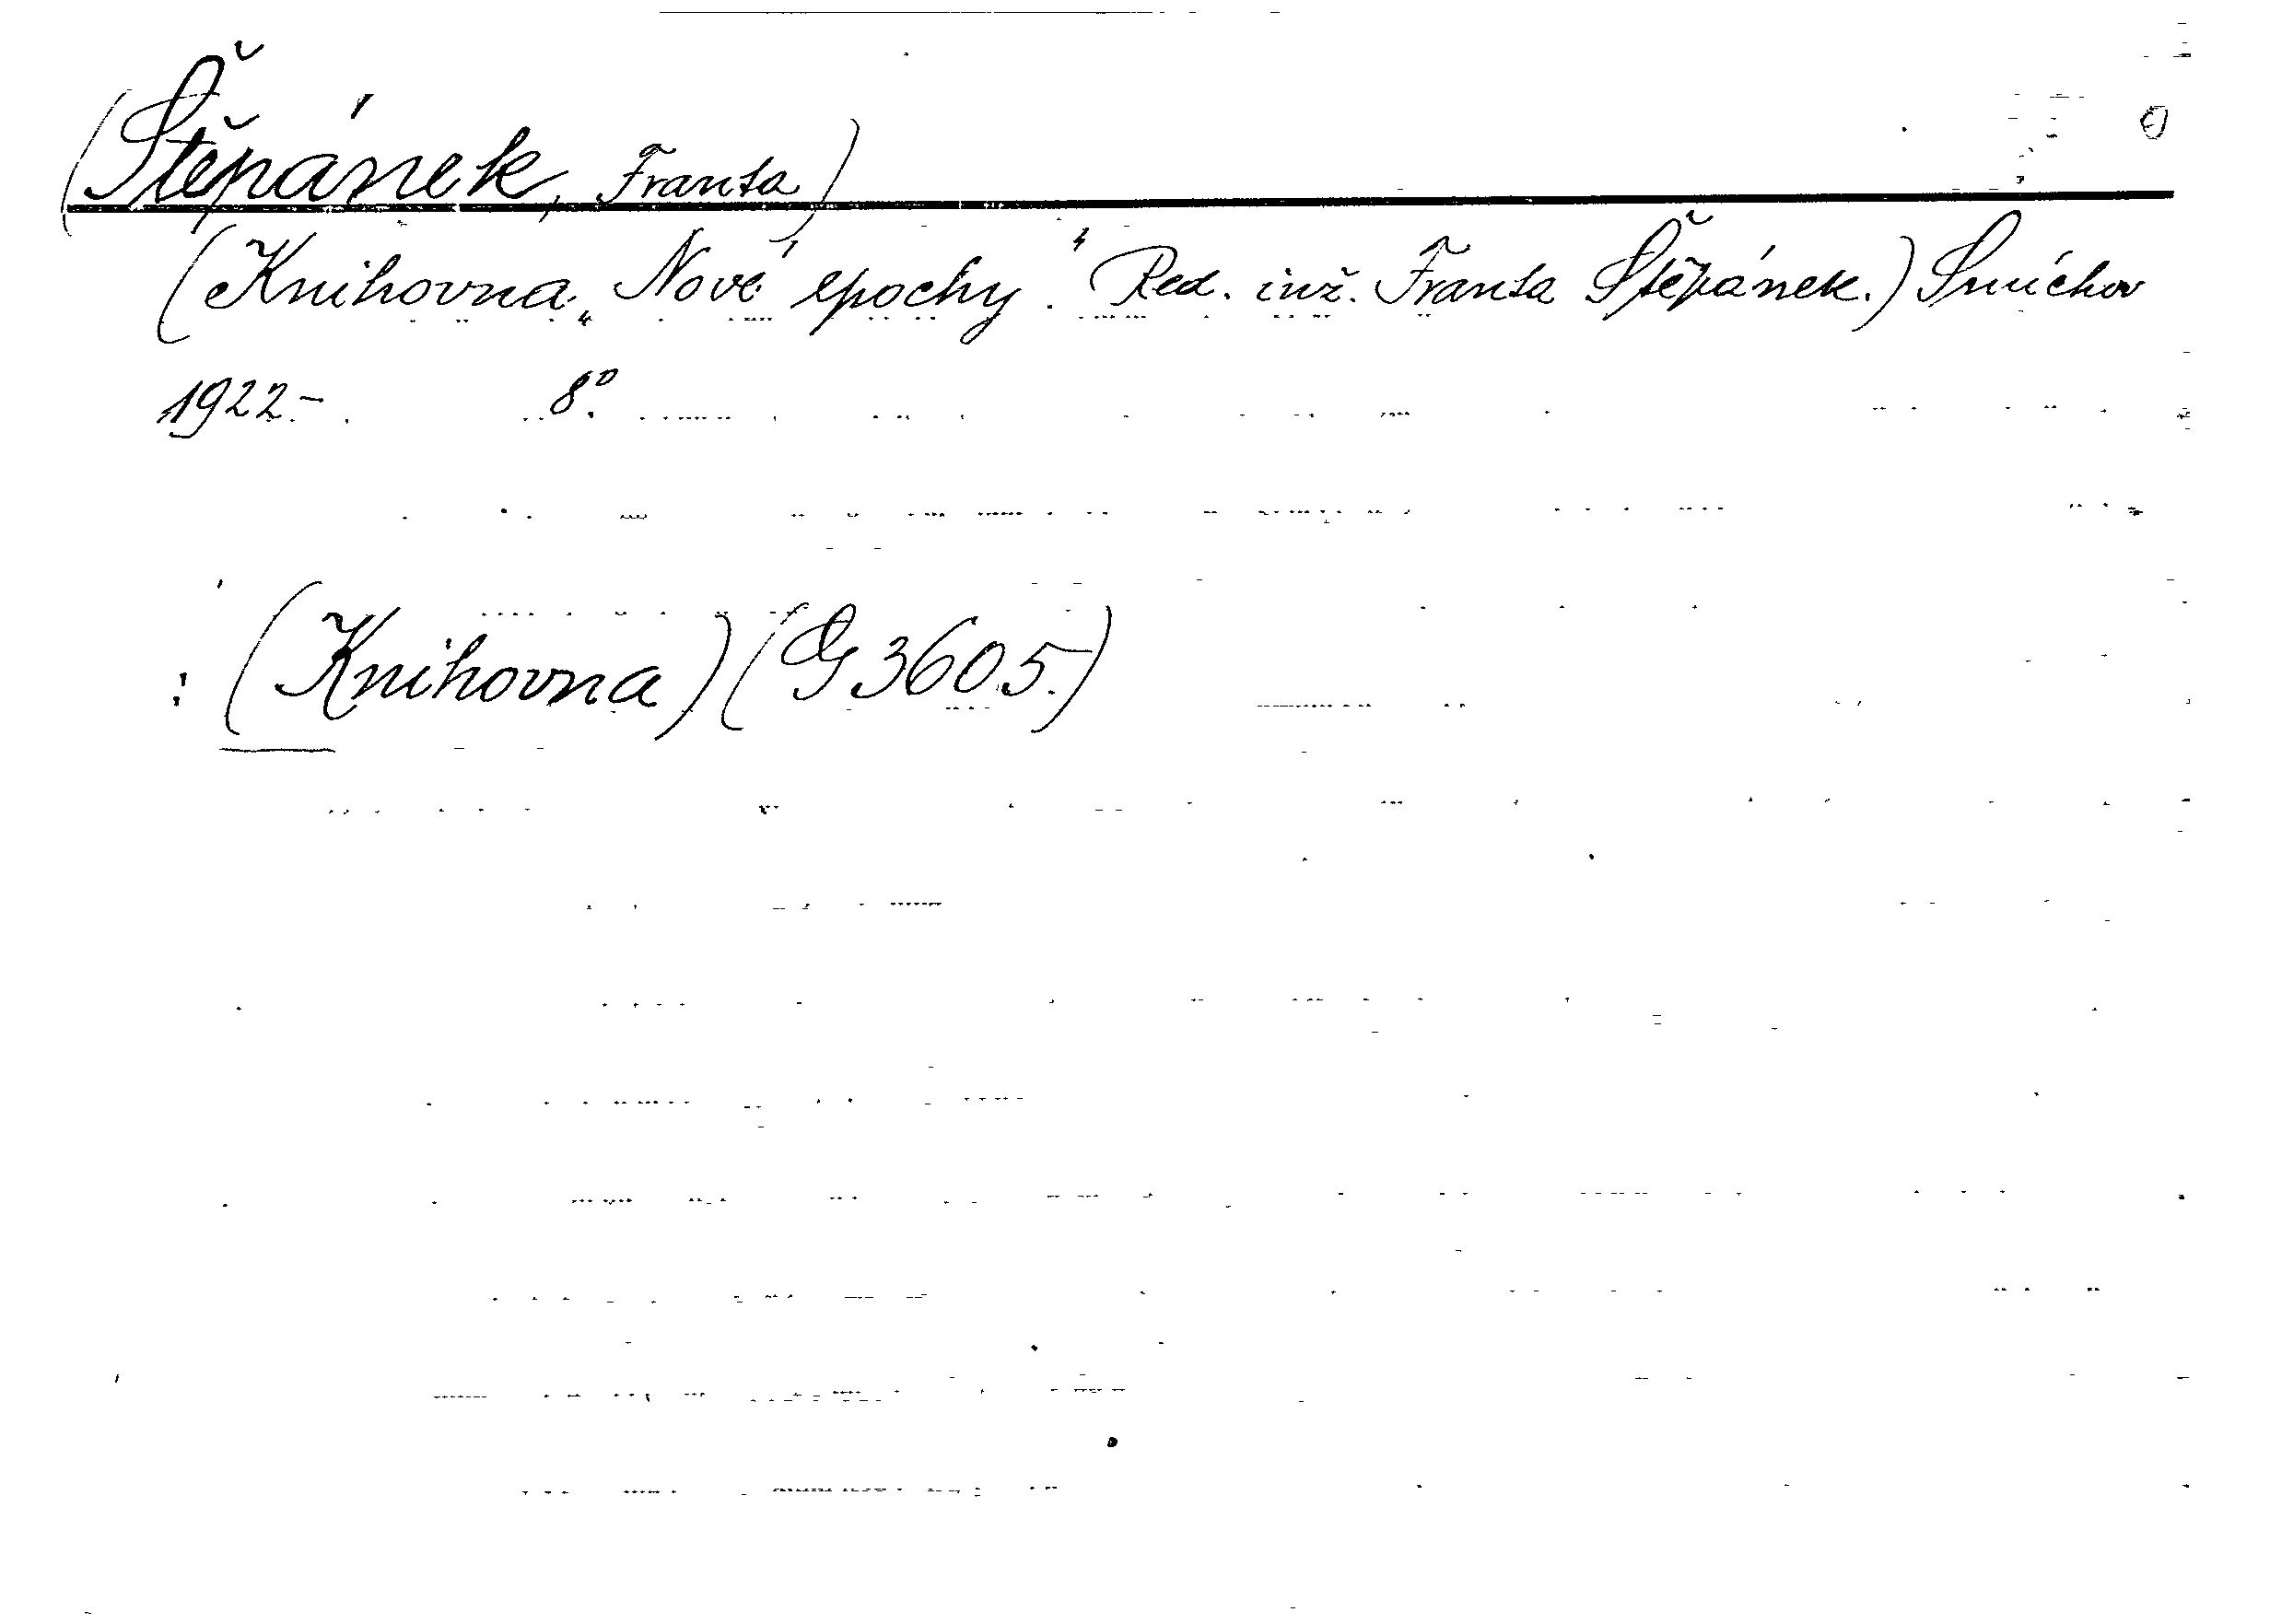 (Štěpánek, Franta)
(Knihovna „Nové epochy." Red. inž. Franta Štěpánek.) Smíchov
1922-. 8°.
: (Knihovna) (G 3605.)